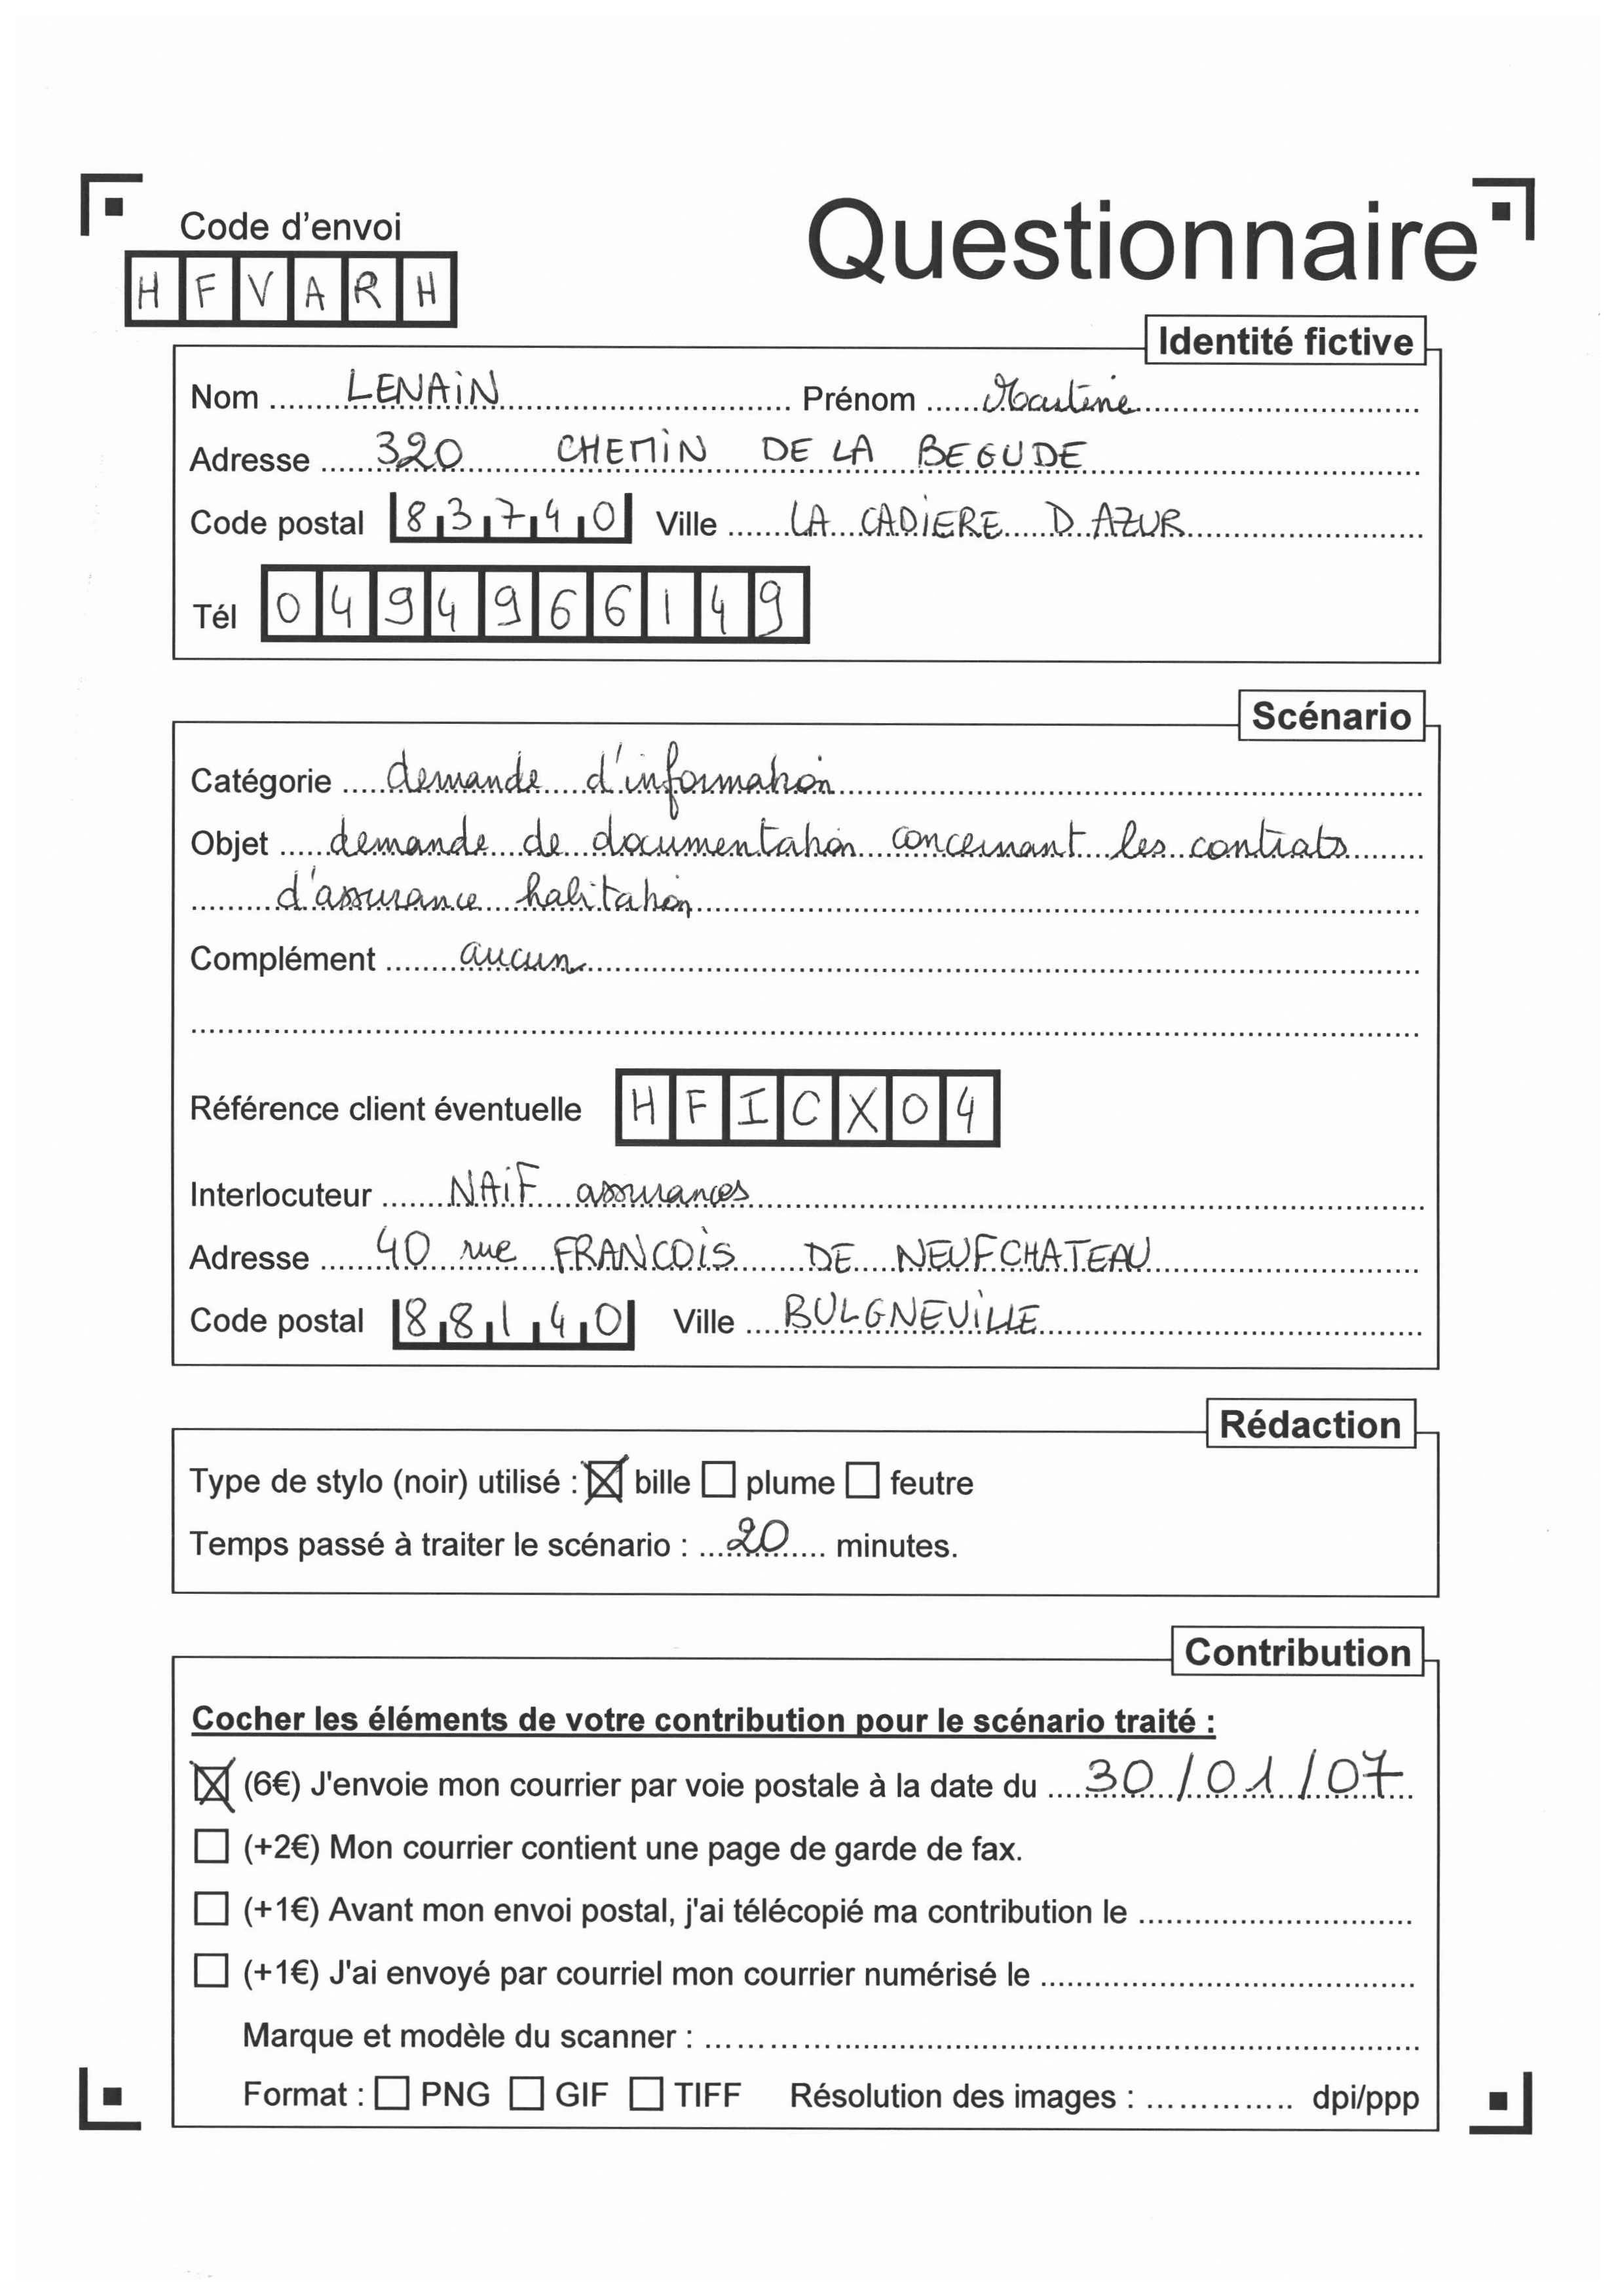 Code d'envoi
Questionnaire
HFVARH
Identité fictive
Nom LENAIN Prénom Martine
Adresse 320 CHEMIN DE LA BEGUDE
Code postal 83740 Ville LA CADIERE D AZUR
Tél 0494966149
Scénario
Catégorie demande d'information
Objet demande de documentation concernant les contrats
d'assurance habitation
Complément aucun
Référence client éventuelle HFICX04
Interlocuteur NAIF assurances
Adresse 40 rue FRANCOIS DE NEUFCHATEAU
Code postal 88140 Ville BULGNEVILLE
Rédaction
Type de stylo (noir) utilisé : ☒ bille ☐ plume ☐ feutre
Temps passé à traiter le scénario : 20 minutes.
Contribution
Cocher les éléments de votre contribution pour le scénario traité :
☒ (6€) J'envoie mon courrier par voie postale à la date du 30/01/07
☐ (+2€) Mon courrier contient une page de garde de fax.
☐ (+1€) Avant mon envoi postal, j'ai télécopié ma contribution le
☐ (+1€) J'ai envoyé par courriel mon courrier numérisé le
Marque et modèle du scanner :
Format : ☐ PNG ☐ GIF ☐ TIFF Résolution des images : dpi/ppp